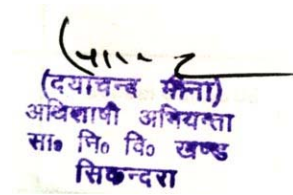 (दयाचन्द मीना)
अधिशाषी अभियन्ता
सा० नि० वि० खण्ड
सिकन्दरा